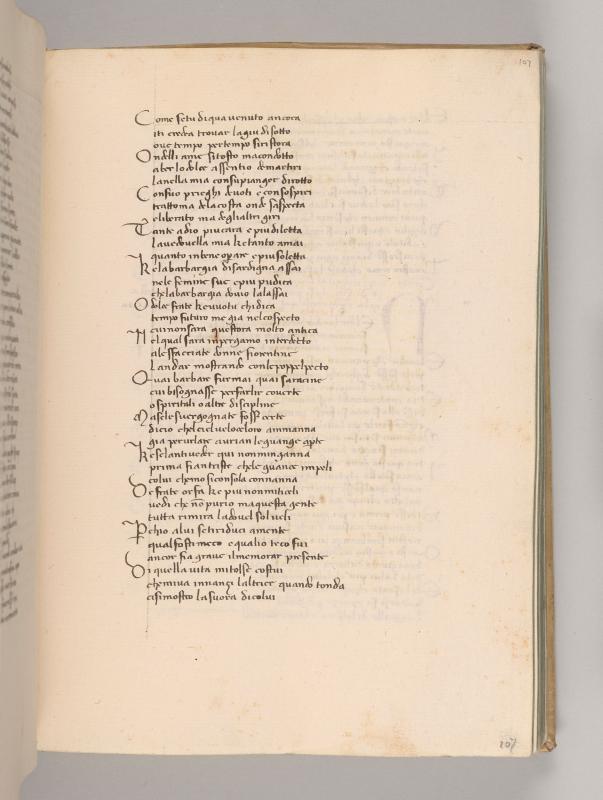 107
Come setu di qua venuto ancora
iti credea trouar la giu disotto
oue tempo per tempo si ristora
Ondelli ame si tosto macondotto
aber lo dolce assentio de martiri
la nella mia con su pianger dirotto
Con suo prieghi deuoti e con sospiri
tratto ma dela costa onde saspecta
e liberato ma degli altri giri
Tante adio piu cara e piu diletta
la uedouella mia ke tanto amai
quanto in bene opare e piu soletta
Ke la barbargia di sardigna assai
nele femine sue e piu pudica
che la barbargia douio la lassai
O dolce frate ke vuotu chi dica
tempo futuro me gia nel cospecto
cui non sara questora molto antica
Nel qual sara in pergamo interdetto
ale sfacciate donne fiorentine
landar mostrando con le poppe l pecto
Quai barbare fur mai quai saracine
cui bisognasse per farle couerte
o spiritali o altre discipline
Ma se le suergognate fosser certe
di cio chel ciel veloce loro ammanna
gia per urlare aurian le
Ke se lanti ueder qui non minganna
prima fian triste che le guance impeli
colui che mo si consola con nanna
De frate or fa ke piu non mi ti celi
vedi che nō pur io ma questa gente
tutta rimira la doue l sol ueli
Perchio a lui se ti riduci a mente
qual fosti meco e qual io teco fui
ancor fia graue il memorar presente
Di quella vita mi volse costui
che mi va innanzi laltrier quando tonda
ui si mostro la suora di colui
107